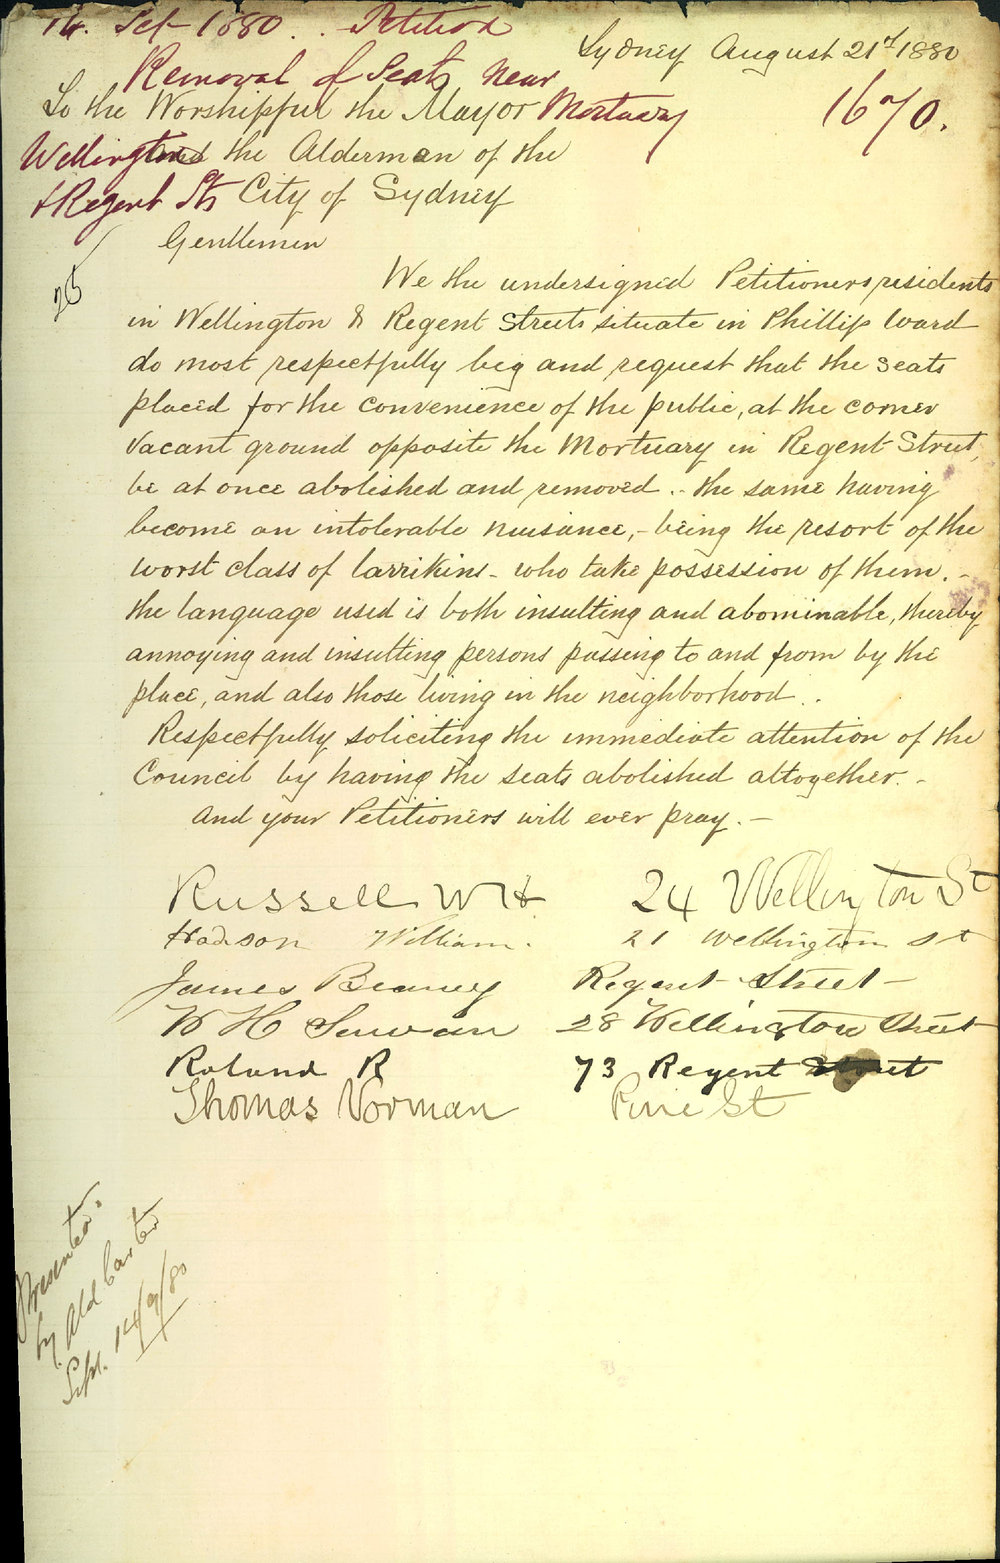 14. Sep 1880. . Petition
Sydney August 21st 1880
Removal of Seats near
To the Worshipful the Mayor Mortuary
1670.
Wellington and the Alderman of the
& Regent Sts City of Sydney
Gentlemen
25
We the undersigned Petitioners residents
in Wellington & Regent Streets situate in Phillip Ward
do most respectfully beg and request that the seats
placed for the convenience of the public, at the corner
vacant ground opposite the Mortuary in Regent Street,
be at once abolished and removed .. the same having
become an intolerable nuisance, - being the resort of the
worst class of larrikins - who take possession of them. -
the language used is both insulting and abominable, thereby
annoying and insulting persons passing to and from by the
place, and also those living in the neighborhood ..
Respectfully soliciting the immediate attention of the
Council by having the seats abolished altogether. -
and your Petitioners will ever pray. -
Russell W H 24 Wellington St
Hodson William. 21 Wellington st
James Beaney Regent Street -
W H 28 Wellington Street
Roland R 73 Regent Street
Thomas Norman Pine St
Presented.
by Ald Carter
Sept. 14/9/80